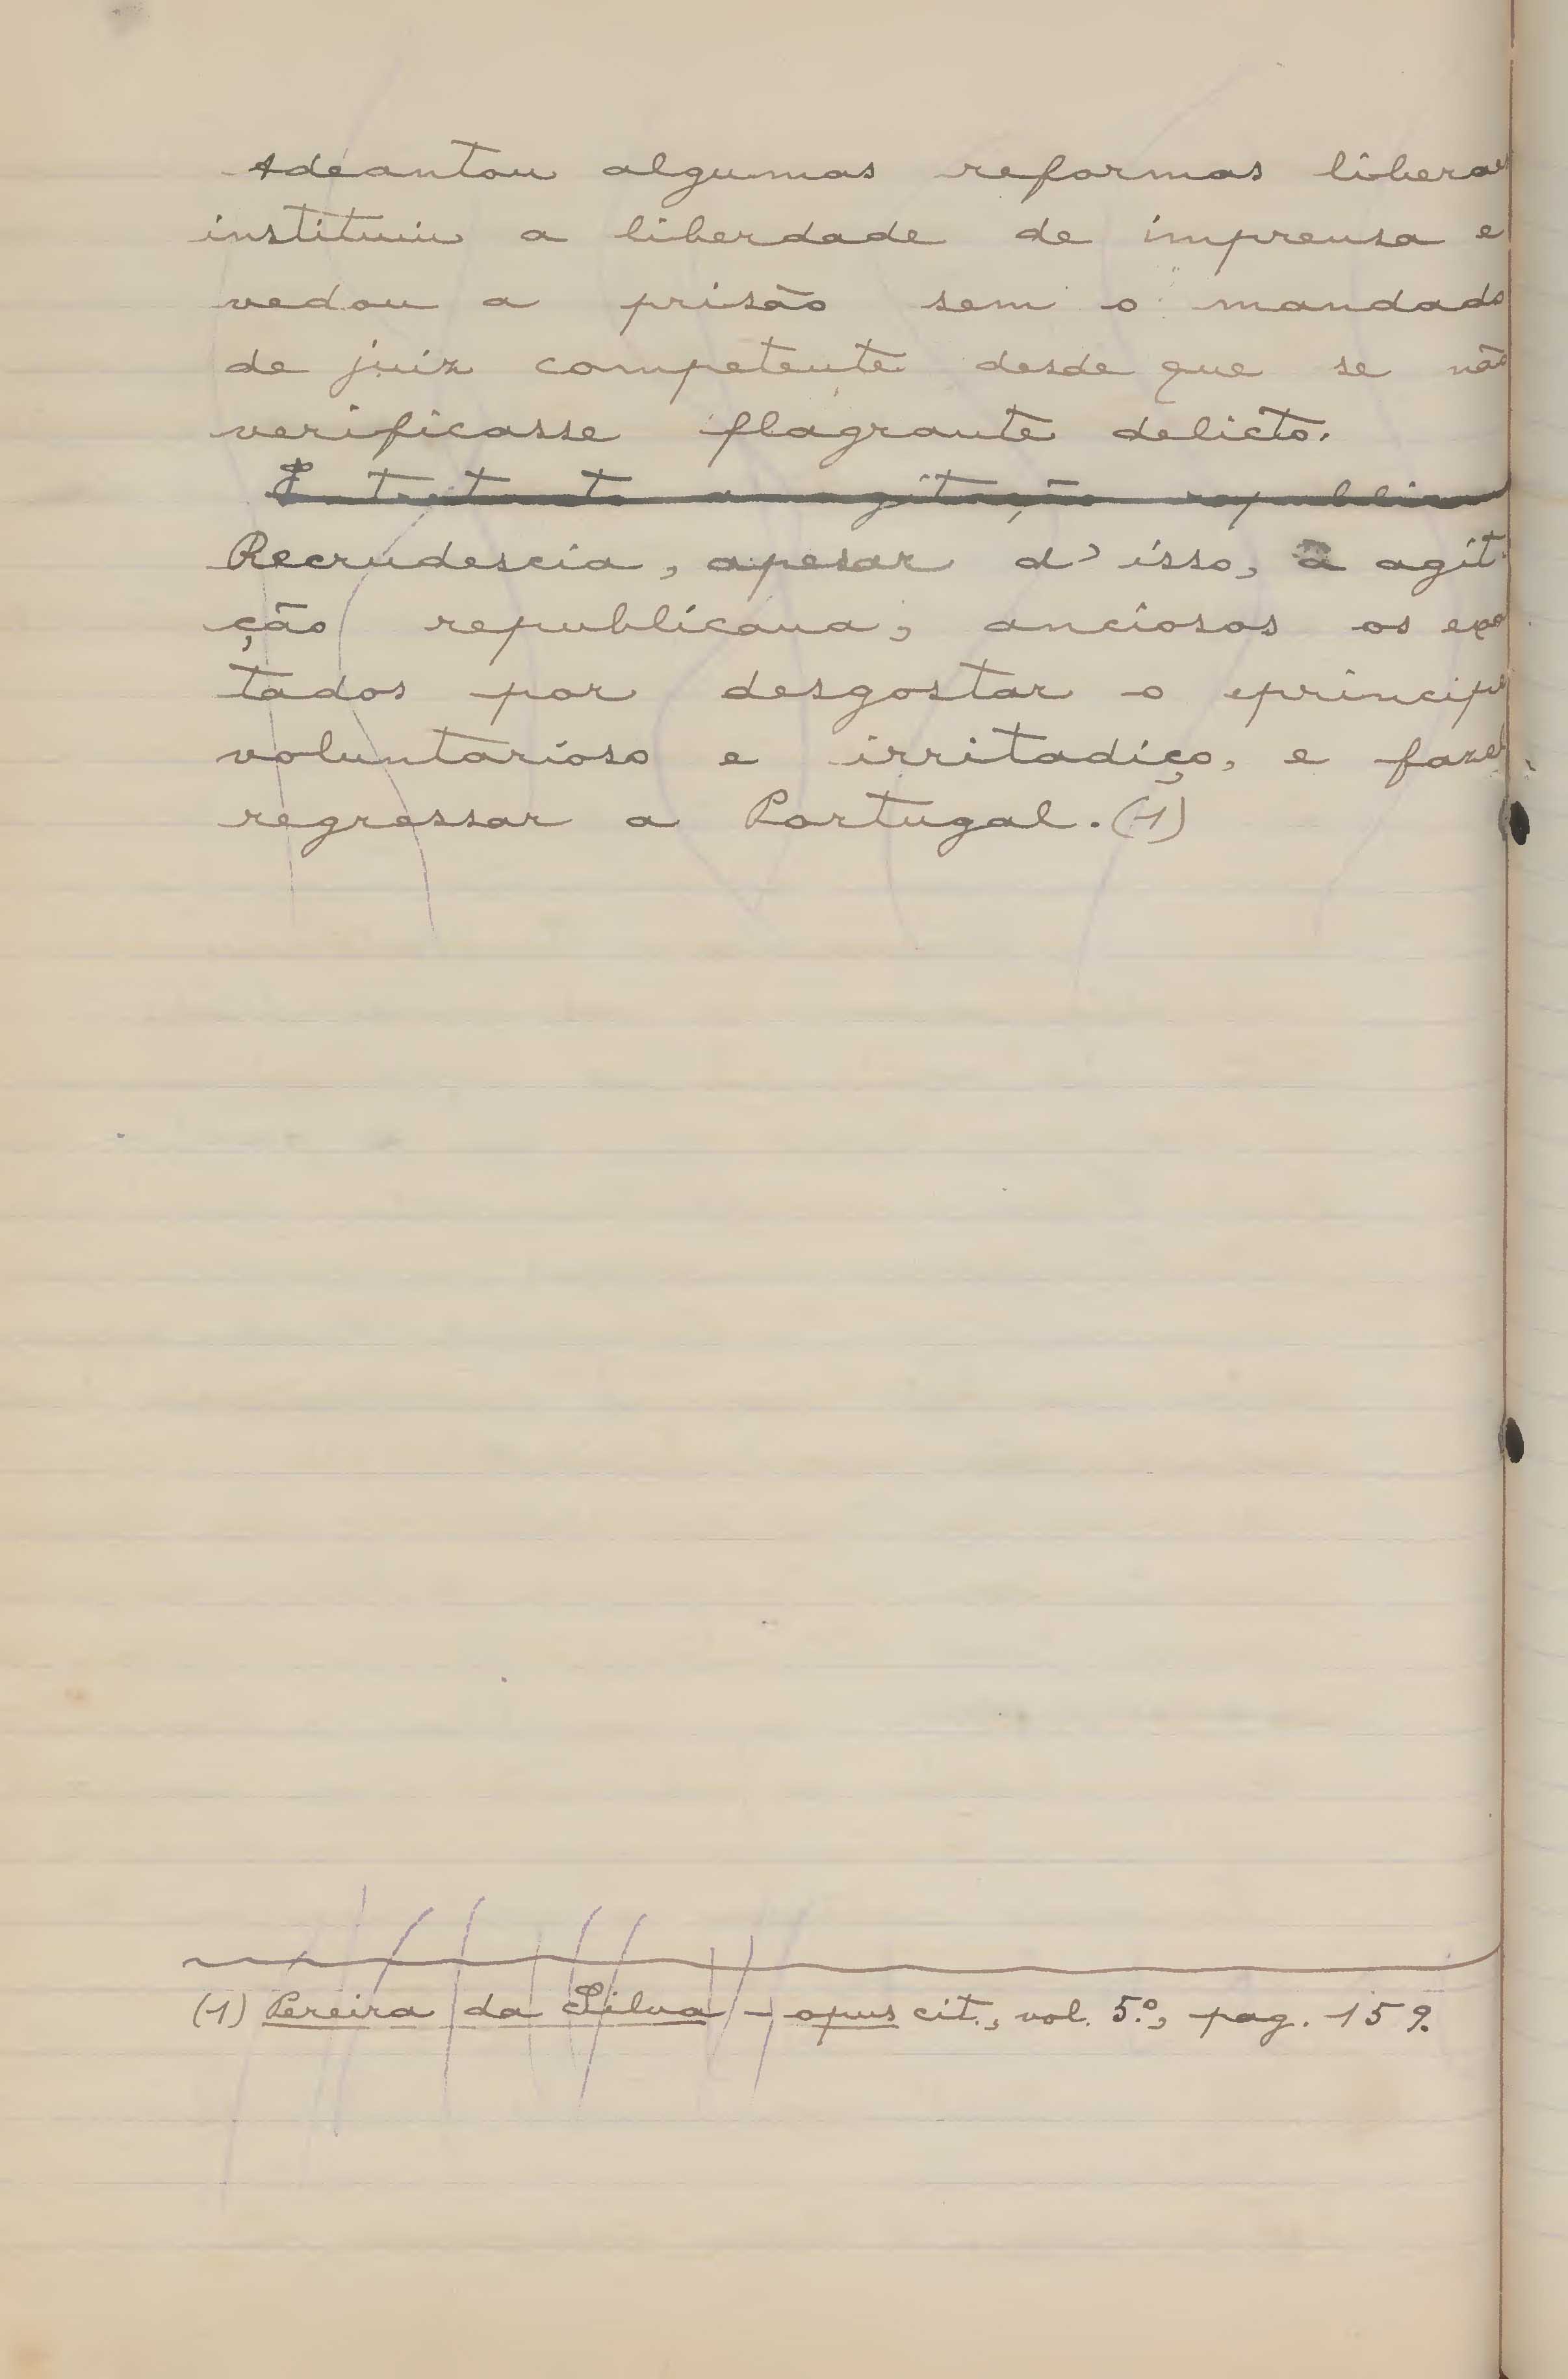 Adeantou algumas reformas liberaes
instituiu a liberdade de imprensa e
vedou a prisão sem o mandado
de juiz competente desde que se não
verificasse flagrante delicto.
Entretanto a agitação republicana
Recrudescia, apesar d'isso, a agit
ção republicana, anciosos os exal
tados por desgostar o principe
voluntarioso e irritadiço, e fazel
regressar a Portugal. (1)
(1) Pereira da Silva - opus cit., vol. 5º, pag. 159.